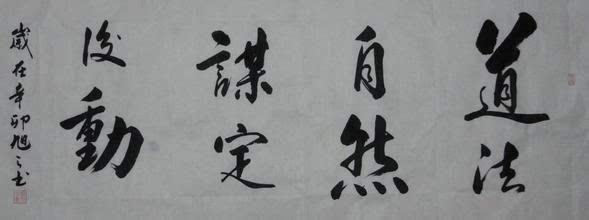 道法
自然
謀定
後動
歲在辛卯旭之书